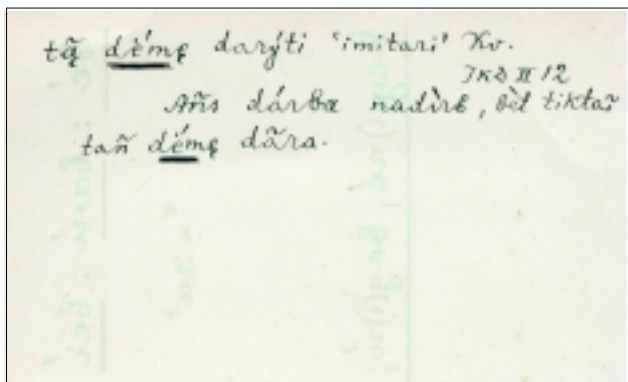 tą̃ dė́mę darýti 'imitari' Kv.
JKD II 12
Añs dárba nadìrb, bèt tiktaĩ
tañ dė́mę dãra.